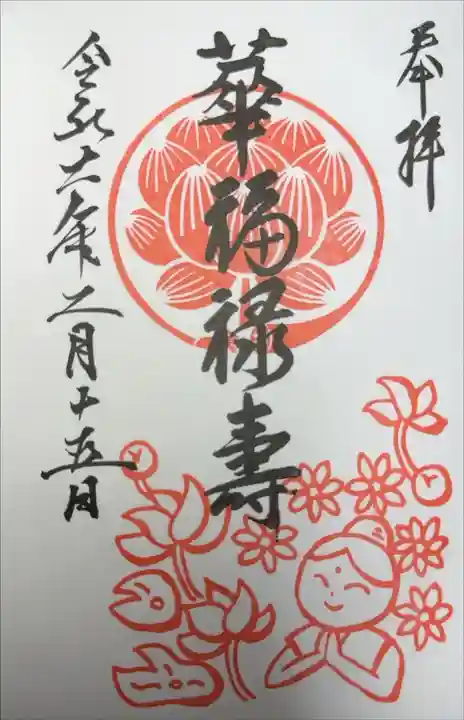 奉拝
華福禄寿
令和六年二月十五日